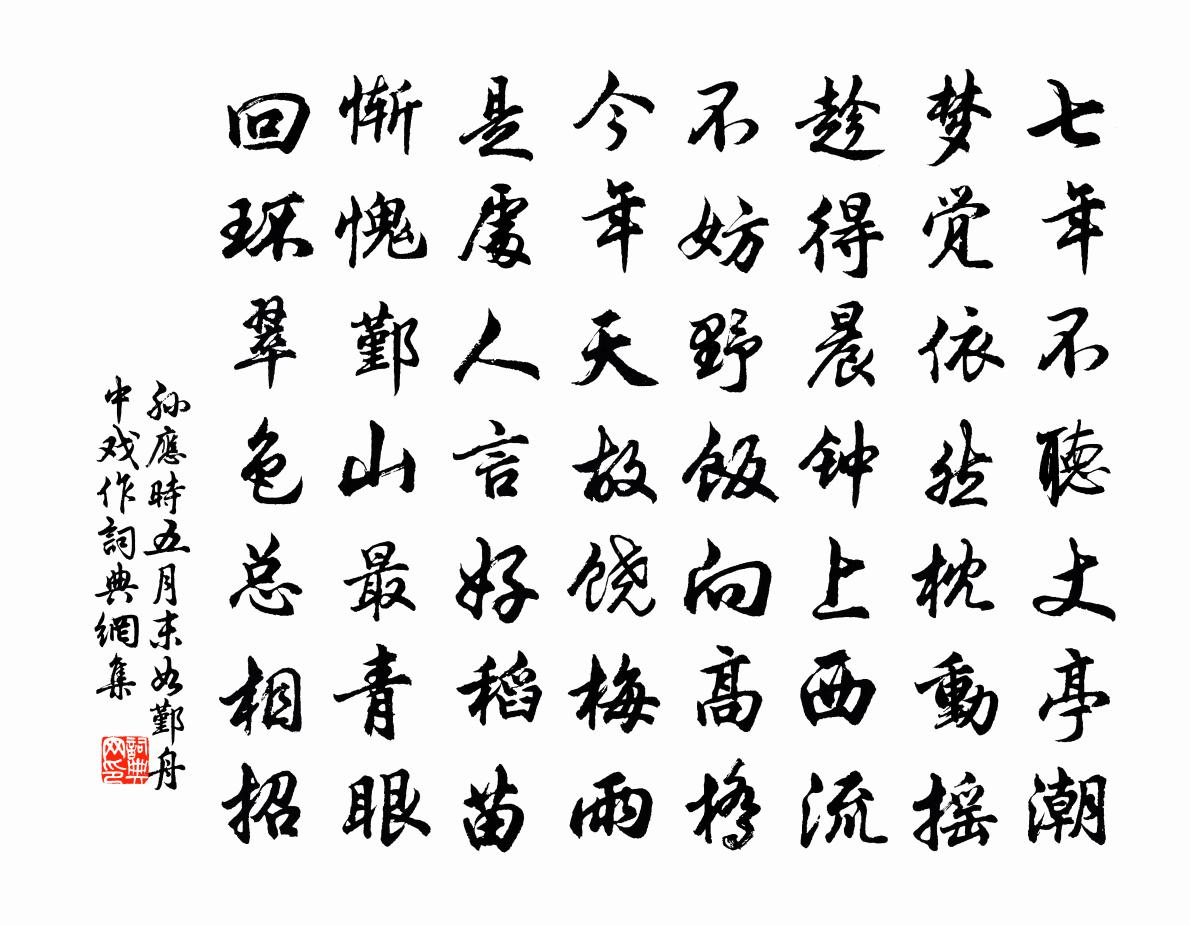 七年不聽丈亭潮
梦觉依然枕動摇
趁得晨钟上西流
不妨野饭向高橋
今年天故饶梅雨
是處人言好稻苗
惭愧鄞山最青眼
回环翠色总相招
孙應時五月末如鄞舟
中戏作詞典網集
詞典
网印